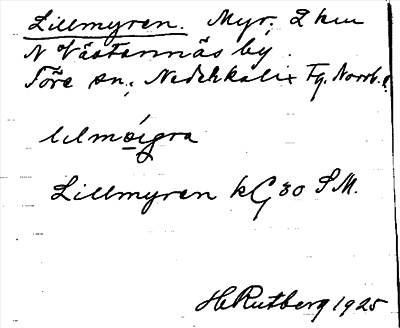 Lillmyren. Myr, 2 km
N Västannäs by.
Töre sn, Nederkalix Tg. Norrb.
lilmøigra
Lillmyren kG 30 S.M.
H Rutberg 1925